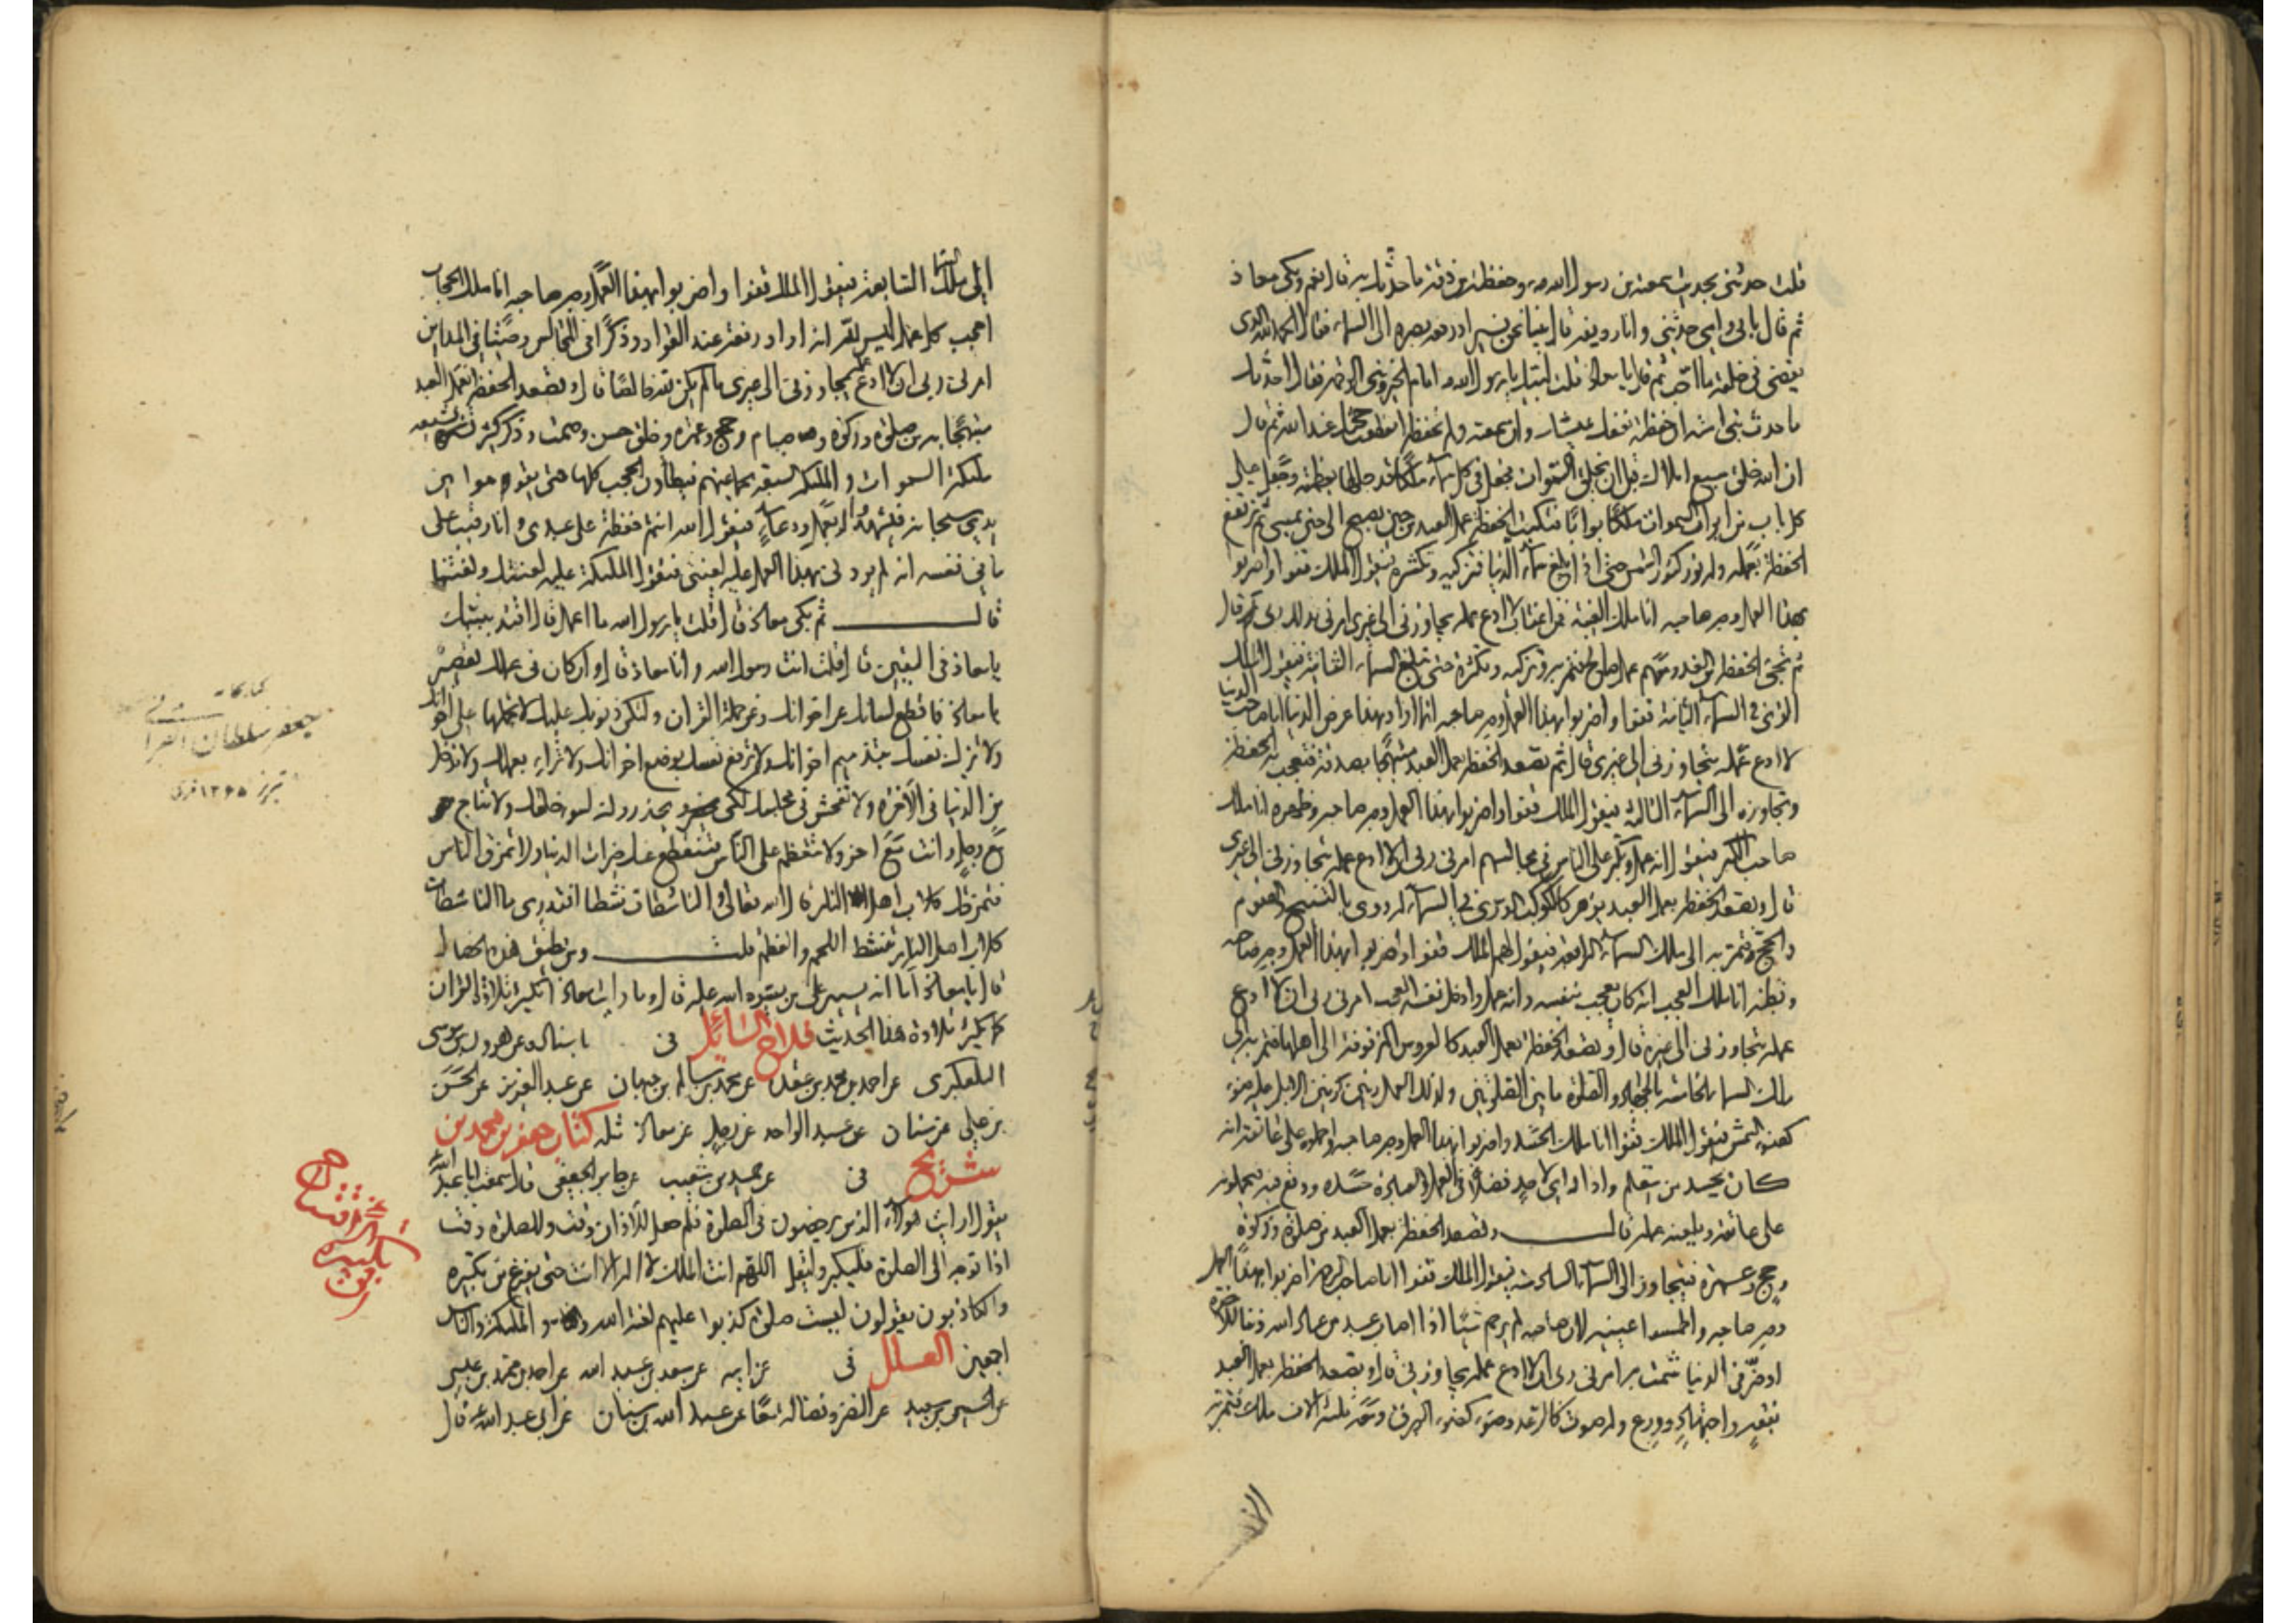 قلت حدثنى بحديث سمعته من رسول الله ص وحفظته من دقة ما حدثك به قال نعم وبكى معاذ
ثم قال بابى وامى حدثنى وانا رديفه قال بينا نحن نسير اذ رفع بصره الى السماء فقال الحمد لله الذى
يقضى فى خلقه ما احب ثم قال يا معاذ قلت لبيك يا رسول الله امام الخير ونبى الرحمة فقال احدثك
ما حدث نبى امته ان حفظته نفعك عيشك وان سمعته ولم تحفظه انقطعت حجتك عند الله ثم قال
ان الله خلق سبع املاك قبل ان يخلق السموات فجعل فى كل سماء ملكا قد جللها بعظمته وجعل على
كل باب من ابواب السموات ملكا بوابا فتكتب الحفظة عمل العبد من حين يصبح الى حين يمسى ثم ترتفع
الحفظة بعمله وله نور كنور الشمس حتى اذا بلغ سماء الدنيا فتزكيه وتكثره فيقول الملك قفوا واضربوا
بهذا العمل وجه صاحبه انا ملك الغيبة فمن اغتاب لا ادع عمله يجاوزنى الى غيرى امرنى بذلك ربى ثم قال
ثم تجئ الحفظة من الغد ومعهم عمل صالح فتمر به وتزكيه وتكثره حتى تبلغ السماء الثانية فيقول الملك
الذى فى السماء الثانية قفوا واضربوا بهذا العمل وجه صاحبه انما اراد بهذا عرض الدنيا انا صاحب الدنيا
لا ادع عمله يتجاوزنى الى غيرى قال ثم تصعد الحفظة بعمل العبد مبتهجا بصدقة فتعجب به الحفظة
وتجاوزه الى السماء الثالثة فيقول الملك قفوا واضربوا بهذا العمل وجه صاحبه وظهره انا ملك
صاحب الكبر فيقول انه عمل وتكبر على الناس فى مجالسهم امرنى ربى ان لا ادع عمله يتجاوزنى الى غيرى
قال وتصعد الحفظة بعمل العبد يزهر كالكوكب الدرى فى السماء له دوى بالتسبيح والصوم
والحج فتمر به الى ملك السماء الرابعة فيقول لهم الملك قفوا واضربوا بهذا العمل وجه صاحبه
وبطنه انا ملك العجب انه كان يعجب بنفسه وانه عمل وادخل نفسه العجب امرنى ربى ان لا ادع
عمله يتجاوزنى الى غيره قال وتصعد الحفظة بعمل العبد كالعروس المزفوفة الى اهلها فتمر به الى
ملك السماء الخامسة بالجهاد والصلوة ما بين الصلوتين ولذلك العمل رنين كرنين الابل عليه ضوء
كضوء الشمس فيقول الملك قفوا انا ملك الحسد واضربوا بهذا العمل وجه صاحبه واحملوه على عاتقه انه
كان يحسد من يتعلم واذا راى لاحد فضلا فى العمل والعبادة حسده ووقع فيه فيحملونه
على عاتقه ويلعنه عمله قال وتصعد الحفظة بعمل العبد من صلوة وزكوة
وحج وعمرة فيتجاوز الى السماء السادسة فيقول الملك قفوا انا صاحب الرحمة اضربوا بهذا العمل
وجه صاحبه واطمسوا عينيه لان صاحبه لم يرحم شيئا اذا اصاب عبد من عباد الله ذنبا للاخرة
او ضر فى الدنيا شمت به امرنى ربى ان لا ادع عمله يجاوزنى قال وتصعد الحفظة بعمل العبد
بفقه واجتهاد وورع وله صوت كالرعد وضوء كضوء البرق ومعه ثلثة الاف ملك فتمر به
الى ملك السماء السابعة فيقول الملك قفوا واضربوا بهذا العمل وجه صاحبه انا ملك الحجاب
احجب كل عمل ليس لله انه اراد رفعة عند القواد وذكرا فى المجالس وصيتا فى المداين
امرنى ربى ان لا ادع عمله يجاوزنى الى غيرى ما لم يكن لله خالصا قال وتصعد الحفظة بعمل العبد
مبتهجا به من صلوة وزكوة وصيام وحج وعمرة وخلق حسن وصمت وذكر كثير تشيعه
ملئكة السموات والملئكة السبعة بجماعتهم فيطأون الحجب كلها حتى يقوموا بين
يدى سبحانه فيشهدوا له بعمل ودعاء فيقول الله انتم حفظة على عبدى وانا رقيب على
ما فى نفسه انه لم يردنى بهذا العمل عليه لعنتى فيقول الملئكة عليه لعنتك ولعنتنا
قال ثم بكى معاذ قال قلت يا رسول الله ما اعمل قال اقتد بنبيك
يا معاذ فى اليقين قال قلت انت رسول الله وانا معاذ قال وان كان فى عملك تقصير
يا معاذ فاقطع لسانك عن اخوانك وعن حملة القران ولتكن ذنوبك عليك لا تحملها على اخوانك
ولا تزك نفسك بتذميم اخوانك ولا ترفع نفسك بوضع اخوانك ولا تراء بعملك ولا تدخل
من الدنيا فى الاخرة ولا تفحش فى مجلسك لكى يحذروك لسوء خلقك ولا تناج
مع رجل وانت مع اخر ولا تتعظم على الناس فتنقطع عنك خيرات الدنيا ولا تمزق الناس
فتمزقك كلاب اهل النار قال الله تعالى والناشطات نشطا افتدرى ما الناشطات
كلاب اهل النار تنشط اللحم والعظم قلت ومن يطيق هذه الخصال
قال يا معاذ اما انه يسير على من يسره الله عليه قال وما رايت معاذ ايكثر تلاوة القران
كما يكثر تلاوة هذا الحديث فلاح السائل فى باسناده عن هرون بن موسى
التلعكبرى عن احمد بن محمد بن عقدة عن محمد بن سالم بن جبهان عن عبد العزيز عن الحسن
بن على عن سنان عن عبد الواحد عن رجل عن معاذ مثله كتاب جعفر بن محمد بن
شريح فى عن حميد بن شعيب عن جابر الجعفى قال سمعت ابا عبد الله
يقول ارايت هولاء الذين يرخصون فى الصلوة فلم جعل للاذان وقت وللصلوة وقت
اذا توجه الى الصلوة فليكبر وليقل اللهم انت الملك لا اله الا انت حتى يفرغ من تكبيره
والكاذبون يقولون ليست صلوة كذبوا عليهم لعنة الله والملئكة والناس
اجمعين العلل فى عن ابيه عن سعد بن عبد الله عن احمد بن محمد بن عيسى
عن الحسين بن سعيد عن النضر وفضالة معا عن عبد الله بن سنان عن ابى عبد الله ع قال